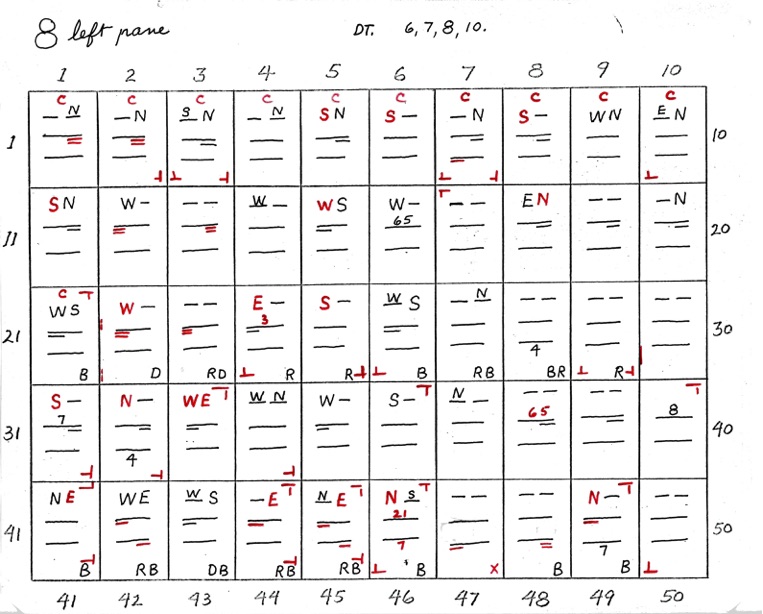 8 left pane DT. 6,7,8,10.
1 2 3 4 5 6 7 8 9 10
C C C C C C C C C C
1 — N — N S N — N S N S — — N S — W N E N 10
11 S N W — — — W — W S W — — — E N — — — N 20
65
C
21 W S W — — — E — S — W S — N — — — — — — 30
3
4
B D RD R R B RB BR R
31 S — N — W E W N W — S — N — — — — — 40
7 65 8
4
41 N E W E W S — E N E N S — — — — N — — — 50
21
7 7
B RB DB RB RB B X B B
41 42 43 44 45 46 47 48 49 50